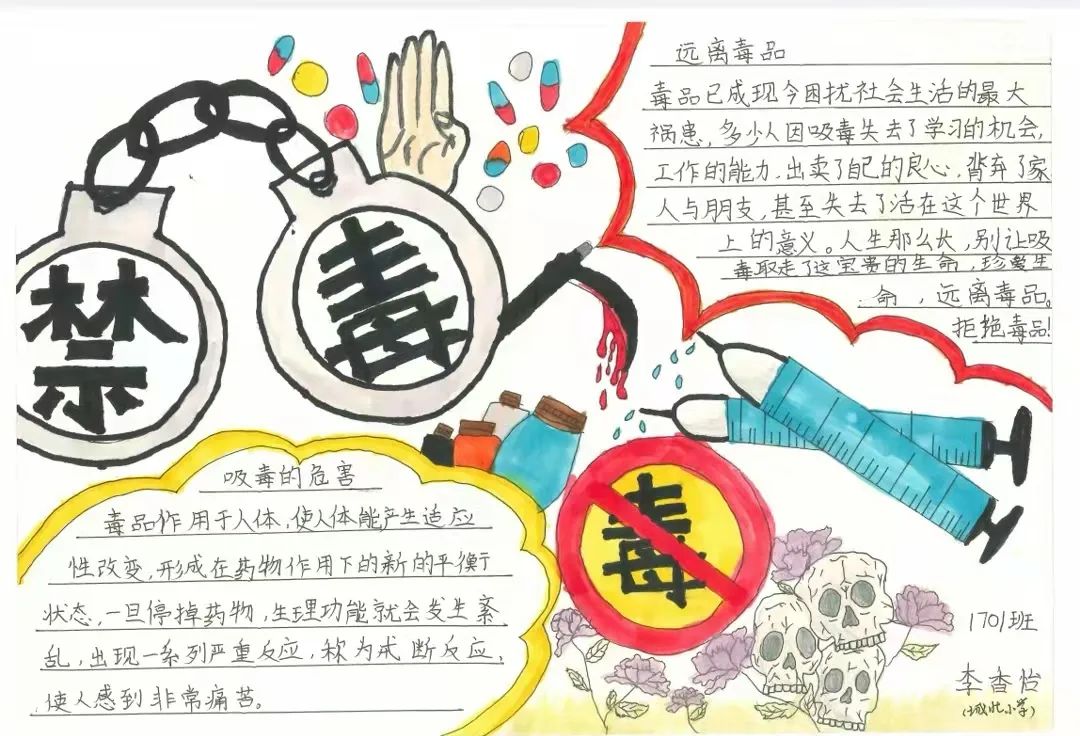 禁
毒
远离毒品
毒品已成现今困扰社会生活的最大
祸患，多少人因吸毒失去了学习的机会，
工作的能力，出卖了自己的良心，背弃了家
人与朋友，甚至失去了活在这个世界
上的意义。人生那么长，别让吸
毒取走了这宝贵的生命，珍爱生
命，远离毒品。
拒绝毒品！
吸毒的危害
毒品作用于人体，使人体能产生适应
性改变，形成在药物作用下的新的平衡
状态，一旦停掉药物，生理功能就会发生紊
乱，出现一系列严重反应，称为戒断反应，
使人感到非常痛苦。
毒
1701班
李香怡
（城北小学）